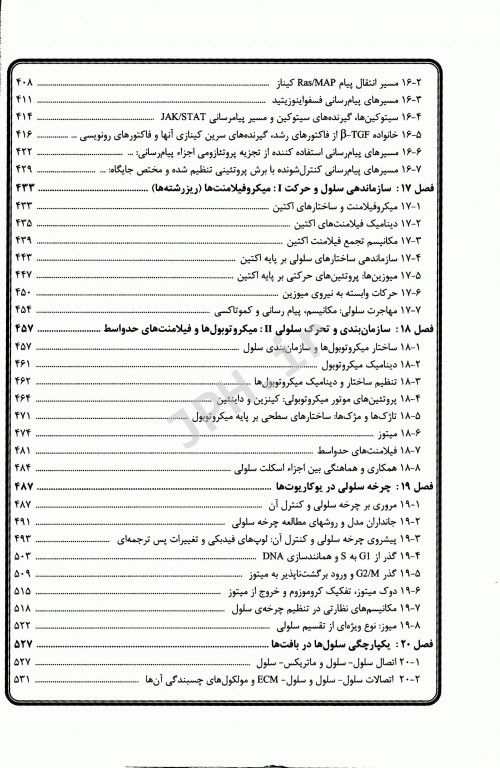 ۱۶-۲ مسیر انتقال پیام Ras/MAP کیناز ........ ۴۰۸
۱۶-۳ مسیرهای پیام‌رسانی فسفواینوزیتید ........ ۴۱۱
۱۶-۴ سیتوکین‌ها، گیرنده‌های سیتوکین و مسیر پیامرسانی JAK/STAT ........ ۴۱۴
۱۶-۵ خانواده β-TGF از فاکتورهای رشد، گیرنده‌های سرین کینازی آنها و فاکتورهای رونویسی ... ........ ۴۱۶
۱۶-۶ مسیرهای پیام‌رسانی استفاده کننده از تجزیه پروتئازومی اجزاء پیام‌رسانی: ... ........ ۴۲۲
۱۶-۷ مسیرهای پیام‌رسانی کنترل‌شونده با برش پروتئینی تنظیم شده و مختص جایگاه: ... ........ ۴۲۹
فصل ۱۷: سازماندهی سلول و حرکت I : میکروفیلامنت‌ها (ریزرشته‌ها) ........ ۴۳۳
۱۷-۱ میکروفیلامنت و ساختارهای اکتین ........ ۴۳۳
۱۷-۲ دینامیک فیلامنت‌های اکتین ........ ۴۳۵
۱۷-۳ مکانیسم تجمع فیلامنت اکتین ........ ۴۳۹
۱۷-۴ سازماندهی ساختارهای سلولی بر پایه اکتین ........ ۴۴۳
۱۷-۵ میوزین‌ها: پروتئین‌های حرکتی بر پایه اکتین ........ ۴۴۷
۱۷-۶ حرکات وابسته به نیروی میوزین ........ ۴۵۰
۱۷-۷ مهاجرت سلولی: مکانیسم، پیام رسانی و کموتاکسی ........ ۴۵۴
فصل ۱۸: سازمان‌بندی و تحرک سلولی II : میکروتوبول‌ها و فیلامنت‌های حدواسط ........ ۴۵۷
۱۸-۱ ساختار میکروتوبول‌ها و سازمان‌بندی سلول ........ ۴۵۷
۱۸-۲ دینامیک میکروتوبول ........ ۴۶۱
۱۸-۳ تنظیم ساختار و دینامیک میکروتوبول‌ها ........ ۴۶۲
۱۸-۴ پروتئین‌های موتور میکروتوبولی: کینزین و داینئین ........ ۴۶۴
۱۸-۵ تاژک‌ها و مژک‌ها: ساختارهای سطحی بر پایه میکروتوبول ........ ۴۷۱
۱۸-۶ میتوز ........ ۴۷۴
۱۸-۷ فیلامنت‌های حدواسط ........ ۴۸۱
۱۸-۸ همکاری و هماهنگی بین اجزاء اسکلت سلولی ........ ۴۸۴
فصل ۱۹: چرخه سلولی در یوکاریوت‌ها ........ ۴۸۷
۱۹-۱ مروری بر چرخه سلولی و کنترل آن ........ ۴۸۷
۱۹-۲ جانداران مدل و روشهای مطالعه چرخه سلولی ........ ۴۹۱
۱۹-۳ پیشروی چرخه سلولی و کنترل آن: لوپ‌های فیدبکی و تغییرات پس ترجمه‌ای ........ ۴۹۳
۱۹-۴ گذر از G1 به S و همانندسازی DNA ........ ۵۰۳
۱۹-۵ گذر G2/M و ورود برگشت‌ناپذیر به میتوز ........ ۵۰۹
۱۹-۶ دوک میتوز، تفکیک کروموزوم و خروج از میتوز ........ ۵۱۵
۱۹-۷ مکانیسم‌های نظارتی در تنظیم چرخه‌ی سلول ........ ۵۱۸
۱۹-۸ میوز: نوع ویژه‌ای از تقسیم سلولی ........ ۵۲۲
فصل ۲۰: یکپارچگی سلول‌ها در بافت‌ها ........ ۵۲۷
۲۰-۱ اتصال سلول- سلول و ماتریکس- سلول ........ ۵۲۷
۲۰-۲ اتصالات سلول- سلول و سلول- ECM و مولکول‌های چسبندگی آن‌ها ........ ۵۳۱